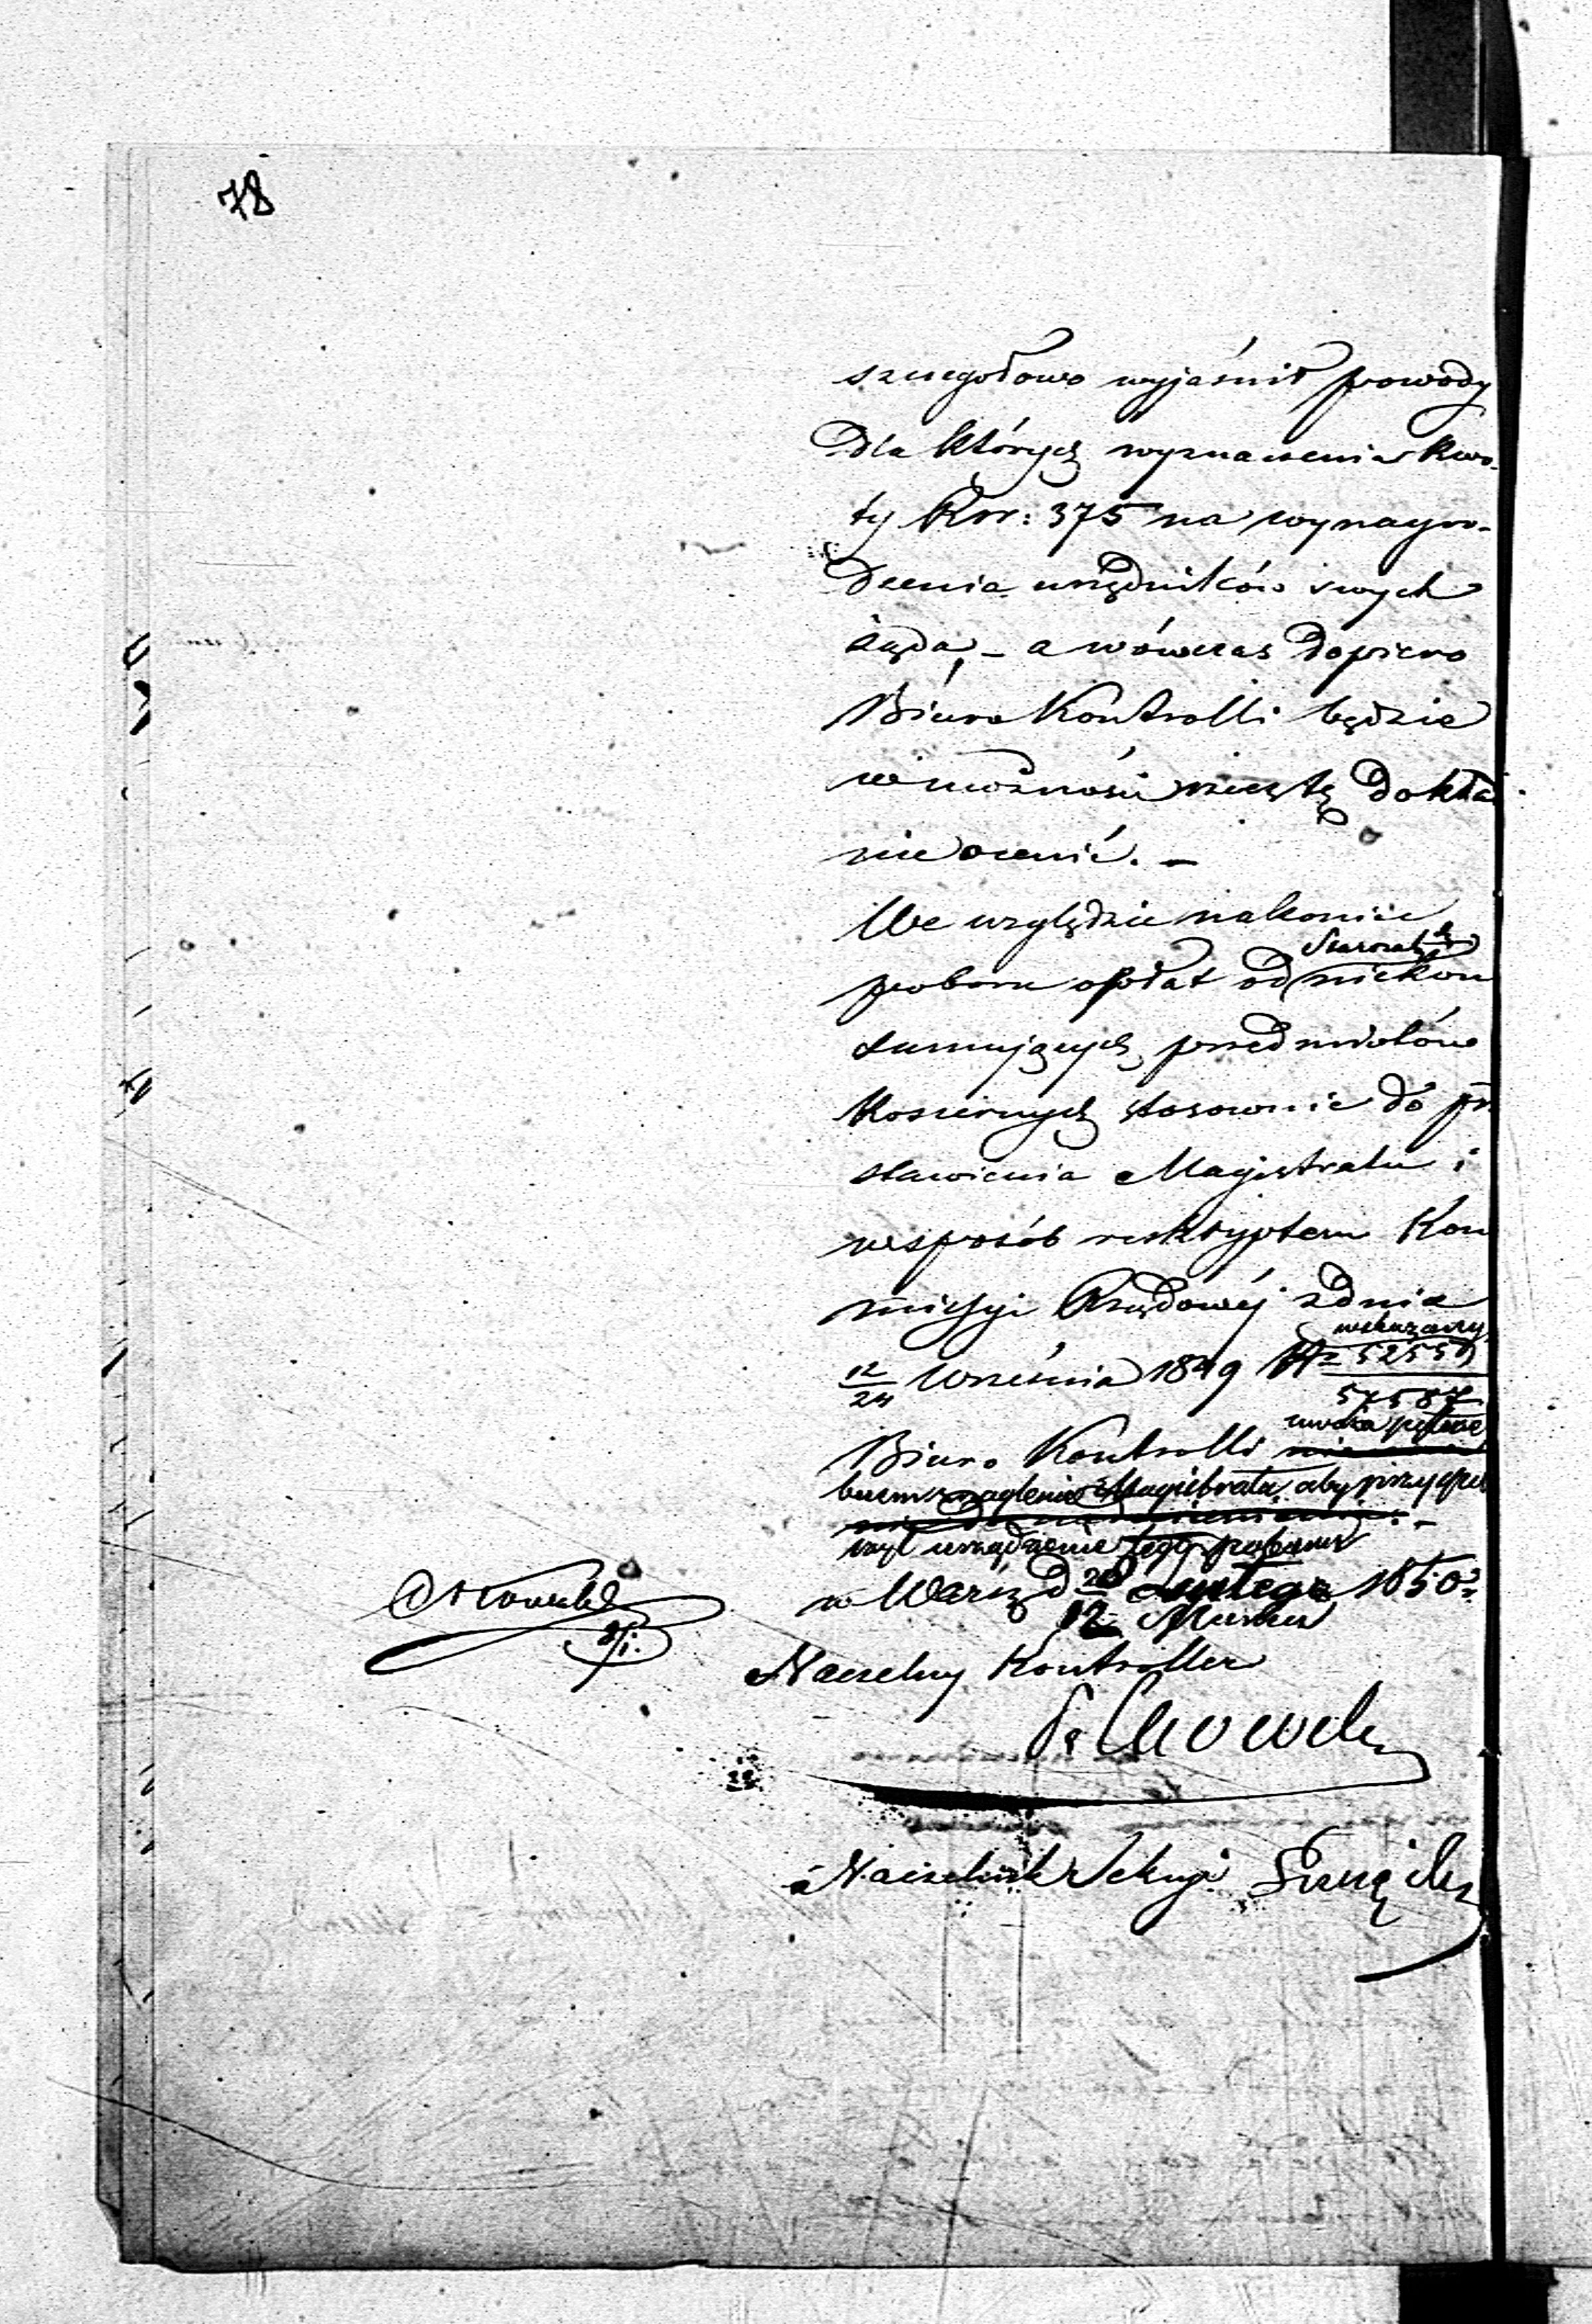 78
szczegołowo wyjaśnił powody
dla których wyznaczenia kwo-
ty Rsr: 375 na wynagro-
dzenia urzędników swych
żąda, - a wówczas dopiero
Biuro Kontrolli będzie
w możności rzecz tę dokła
nie ocenić. -
We względzie nakoniec
poboru opłat od Starozak: niekon
sumujących przedmiotów
Koszernych stosownie do prz
stawienia Magistratu i
w sposób reskryptem Kom
missyi Rządowéj z dnia
wskazany
12/24 Września 1849 Nr 52557/57587
uważa potrze
Biuro Kontrolli
bnem naglenie Magistratu, aby przyspie
szył urządzenie tego poboru
w Warsz. d 28 Lutego 1850 r
12 Marca
Naczelny Kontroller
Naczelnik Sekcyi